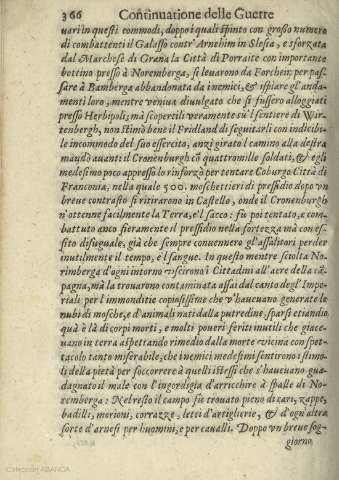 366 Continuatione delle Guerre
uari in questi commodi, doppo i quali spinto con grosso numero
di combattenti il Galasso contr'Arnehim in Slesia, e sforzata
dal Marchese di Grana la Città di Porraite con importante
bottino presso à Noremberga, si leuarono da Forchein per pas-
sare à Bamberga abbandonata da inemici, & ispiare gl'anda-
menti loro; mentre veniua diuulgato che si fussero alloggiati
presso Herbipoli; mà scopertili veramente sù'l sentiere di Wir-
tenbergh, non stimò bene il Fridland di seguitarli con indicibi-
le incommodo del suo essercito, anzi girato il camino alla destra
mandò auanti il Cronenburgh cõ quattromille soldati, & egli
medesimo poco appresso lo rinforzò per tentare Coburgo Città di
Franconia, nella quale 500. moschettieri di pressidio dopo vn
breue contrasto si ritirarono in Castello, onde il Cronenburgh
n'ottenne facilmente la Terra, e'l sacco: fù poi tentato, e com-
battuto anco fieramente il pressidio nella fortezza mà con es-
sito disuguale, già che sempre conuennero gl'assalitori perder
inutilmente il tempo, e'l sangue. In questo mentre sciolta No-
rimberga d'ogni intorno vscirono i Cittadini all'aere della cã-
pagna, mà la trouarono contaminata assai dal canto degl'Impe-
riali per l'immonditie copiosissime che v'haueuano generate le
nubi di mosche, e d'animali nati dalla putredine, sparsi etiandio
quà è là di corpi morti, e molti poueri feriti inutili che giace-
uano in terra aspettando rimedio dalla morte vicina con spet-
tacolo tanto miserabile, che inemici medesimi sentirono i stimo-
li della pietà per soccorrere à quelli istessi che s'haueuano gua-
dagnato il male con l'ingordigia d'arricchire à spalle di No-
remberga: Nel resto il campo fù trouato pieno di cari, zappe,
badilli, morioni, corrazze, letti d'artiglierie, & d'ogn'altra
sorte d'arnesi per huomini, e per caualli. Doppo vn breue sog-
giorno
Colección ABANCA